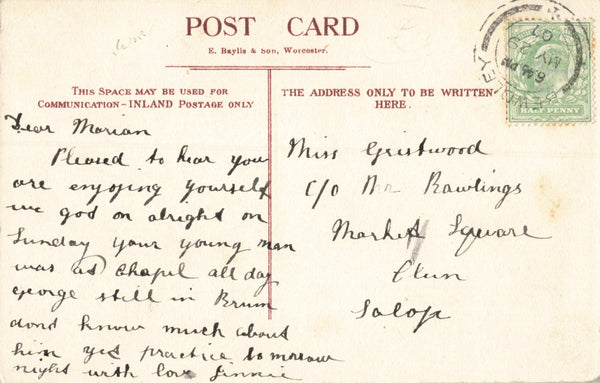 POST CARD
E. Baylis & Son, Worcester.
THIS SPACE MAY BE USED FOR
COMMUNICATION-INLAND POSTAGE ONLY
THE ADDRESS ONLY TO BE WRITTEN
HERE.
BEWDLEY
6.45 PM
MY 29
07
HALFPENNY
Dear Marian
Pleased to hear you
are enjoying yourself
we god on alright on
Sunday your young man
was at Chapel all day
George still in Brum
dont know much about
him yet practice to morrow
night with love Linnie
Miss Gristwood
C/o Mr Rawlings
Market Square
Clun
Salop